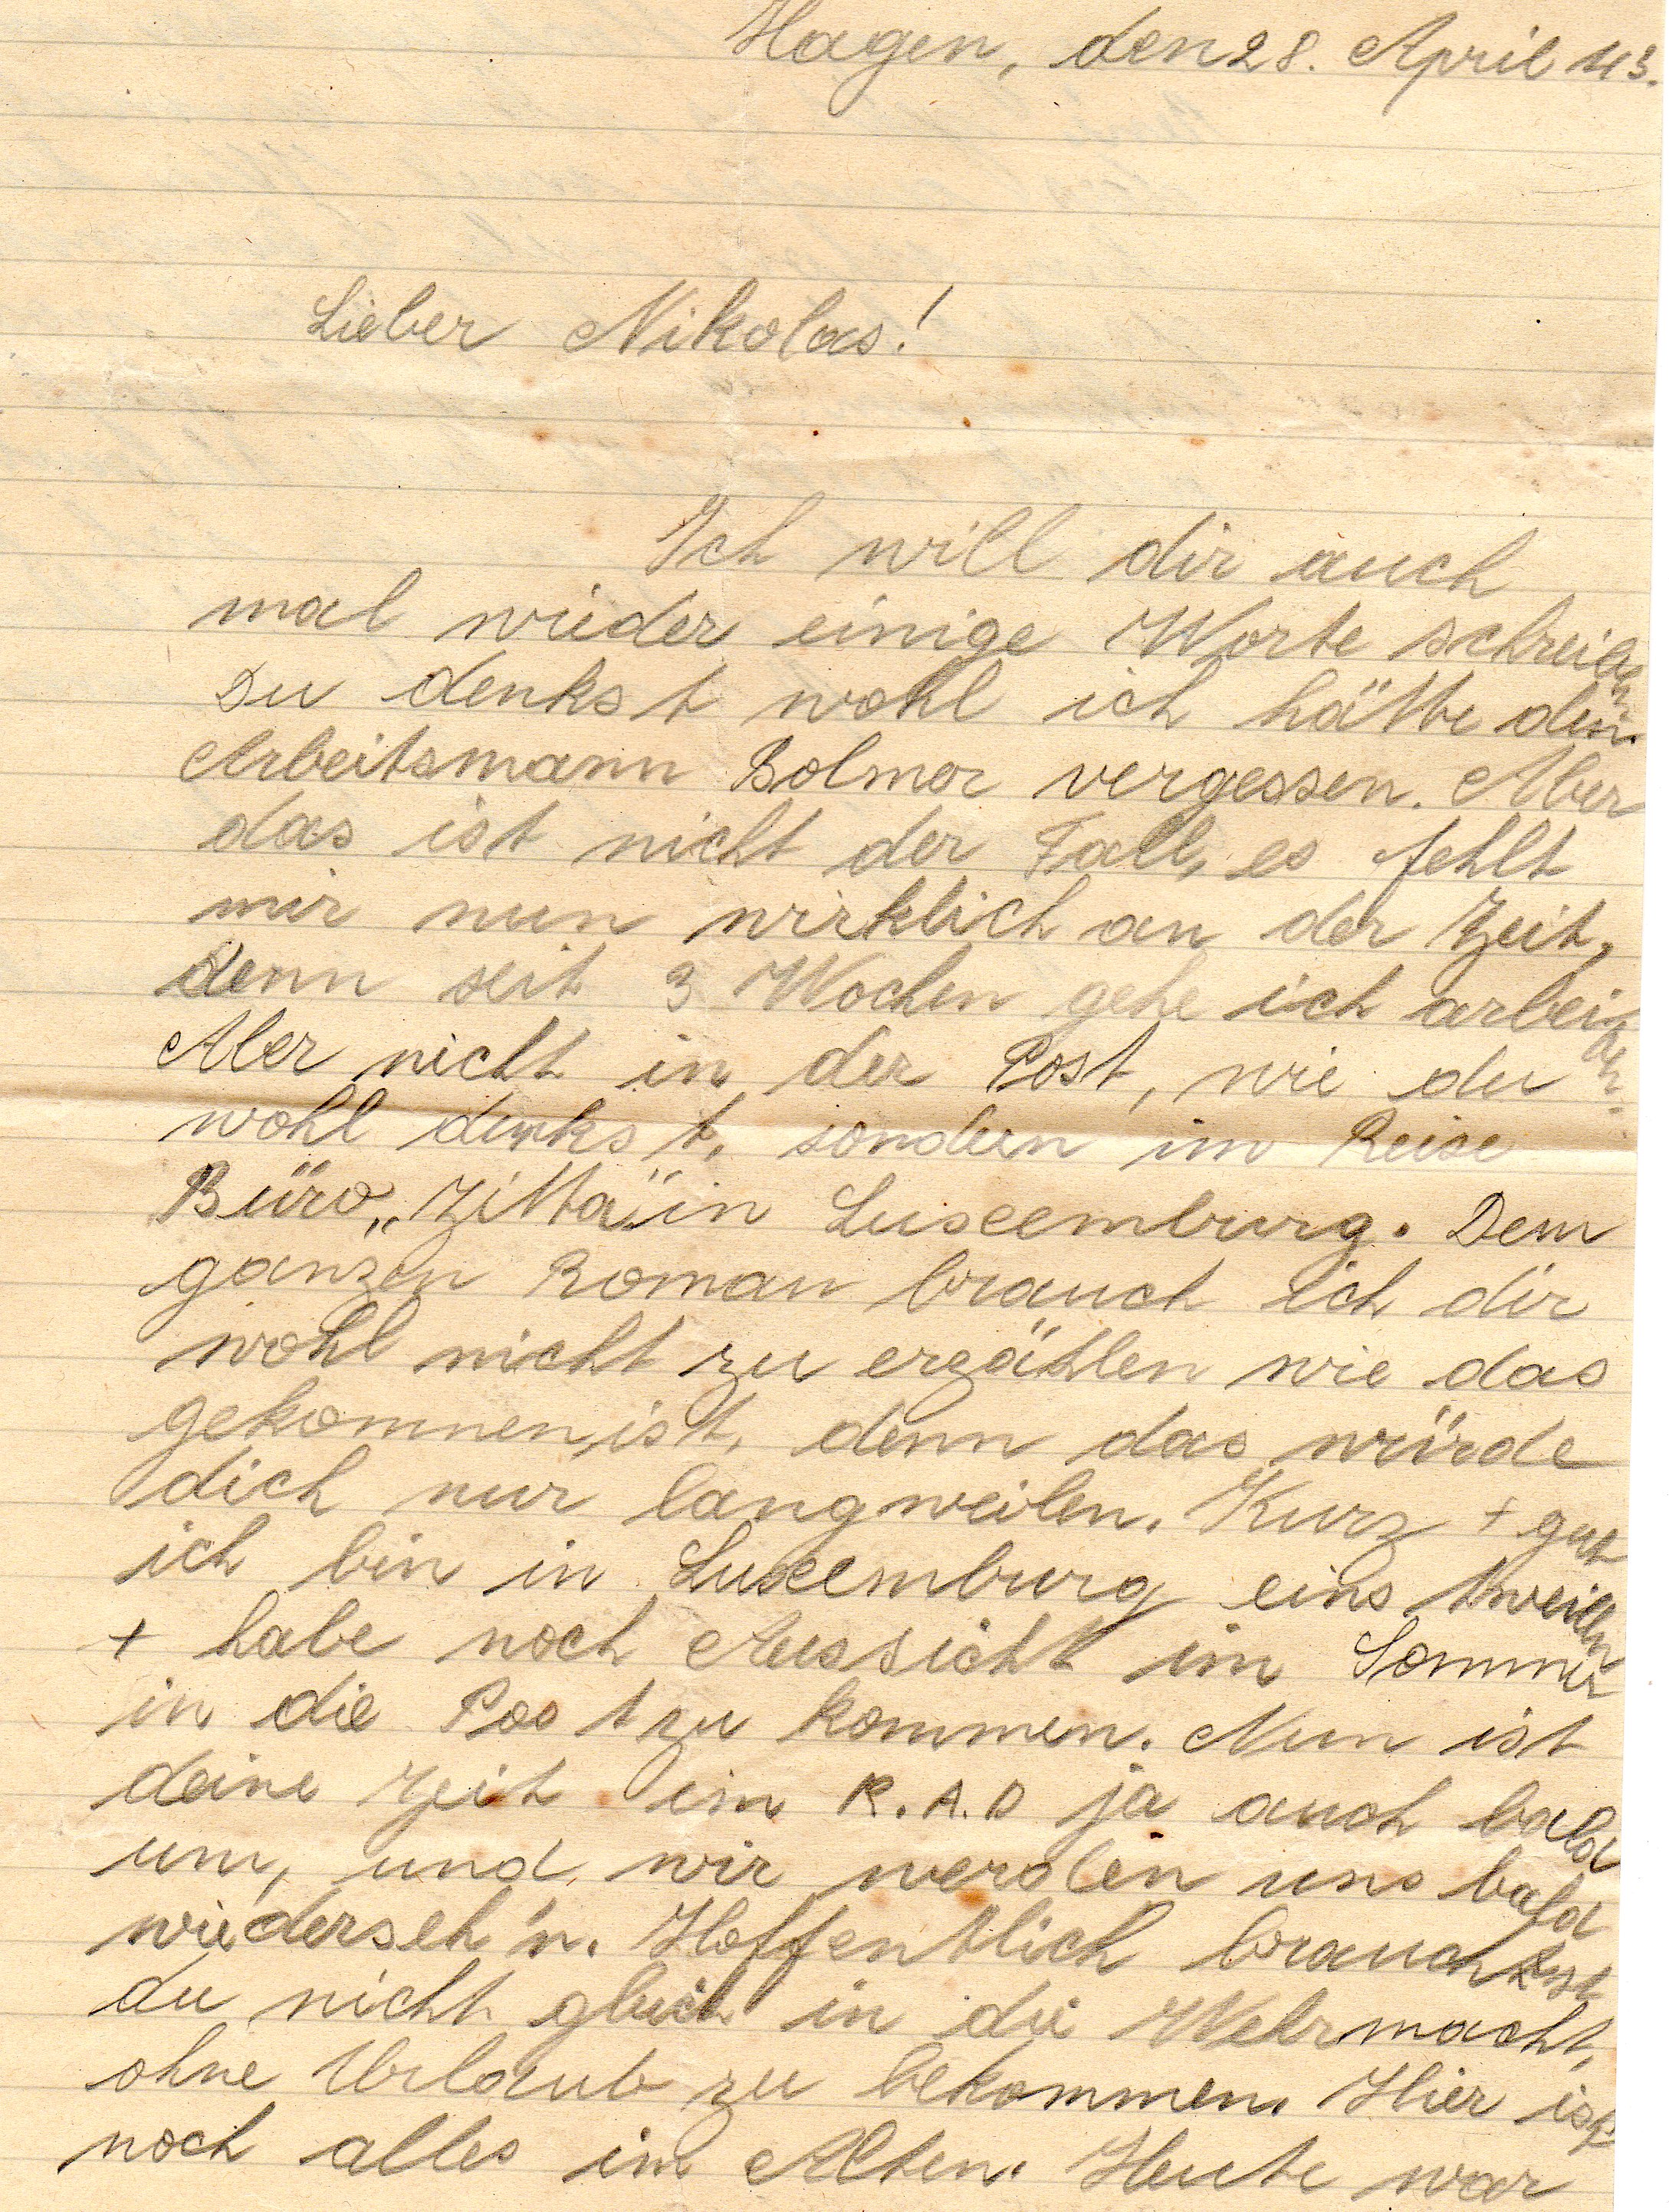 Hagen, den 28. April 43.
Lieber Nikolas!
Ich will dir auch
mal wieder einige Worte schreiben
Du denkst wohl ich hätte den
Arbeitsmann Bolmer vergessen. Aber
das ist nicht der Fall, es fehlt
mir nun wirklich an der Zeit,
denn seit 3 Wochen gehe ich arbeiten.
Aber nicht in der Post, wie du
wohl denkst, sondern im Reise
Büro „Zitta" in Luxemburg. Dem
ganzen Roman brauch ich dir
wohl nicht zu erzählen wie das
gekommen ist, denn das würde
dich nur langweilen. Kurz + gut
ich bin in Luxemburg einstweilen
+ habe noch Aussicht im Sommer
in die Post zu kommen. Nun ist
deine Zeit im R.A.D ja auch bald
um, und wir werden uns bald
wiederseh'n. Hoffentlich brauchst
du nicht gleich in die Wehrmacht,
ohne Urlaub zu bekommen. Hier ist
noch alles im Alten. Heute war